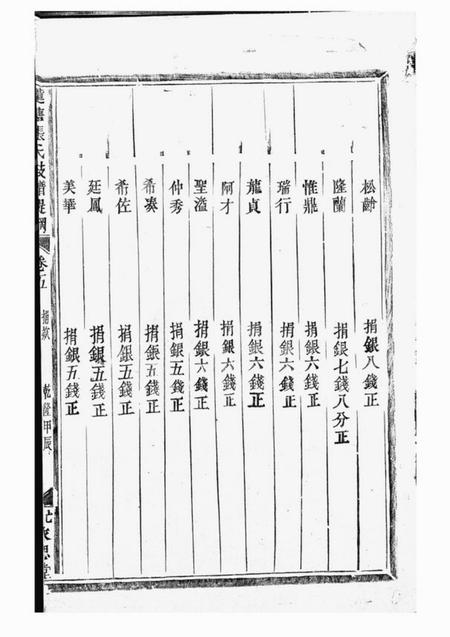 松齡 捐銀八錢正
隆蘭 捐銀七錢八分正
惟鼎 捐銀六錢正
瑞行 捐銀六錢正
龍貞 捐銀六錢正
阿才 捐銀六錢正
聖溢 捐銀六錢正
仲秀 捐銀五錢正
希湊 捐銀五錢正
希佐 捐銀五錢正
廷鳳 捐銀五錢正
美華 捐銀五錢正
張氏 譜 卷五 捐款 乾隆甲辰 思堂